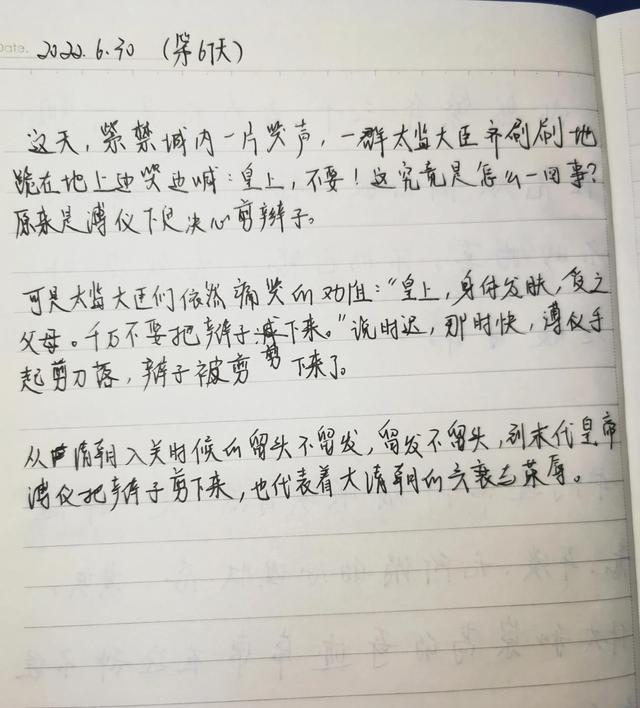 Date. 2022.6.30 (第67天)
这天,紫禁城内一片哭声,一群太监大臣齐刷刷地
跪在地上边哭边喊:皇上,不要!这究竟是怎么一回事?
原来是溥仪下定决心剪辫子。
可是太监大臣们依然痛哭的劝阻:"皇上,身体发肤,受之
父母。千万不要把辫子剪下来。"说时迟,那时快,溥仪手
起剪刀落,辫子被剪下来了。
从清朝入关时候的留头不留发,留发不留头,到末代皇帝
溥仪把辫子剪下来,也代表着大清朝的兴衰与荣辱。